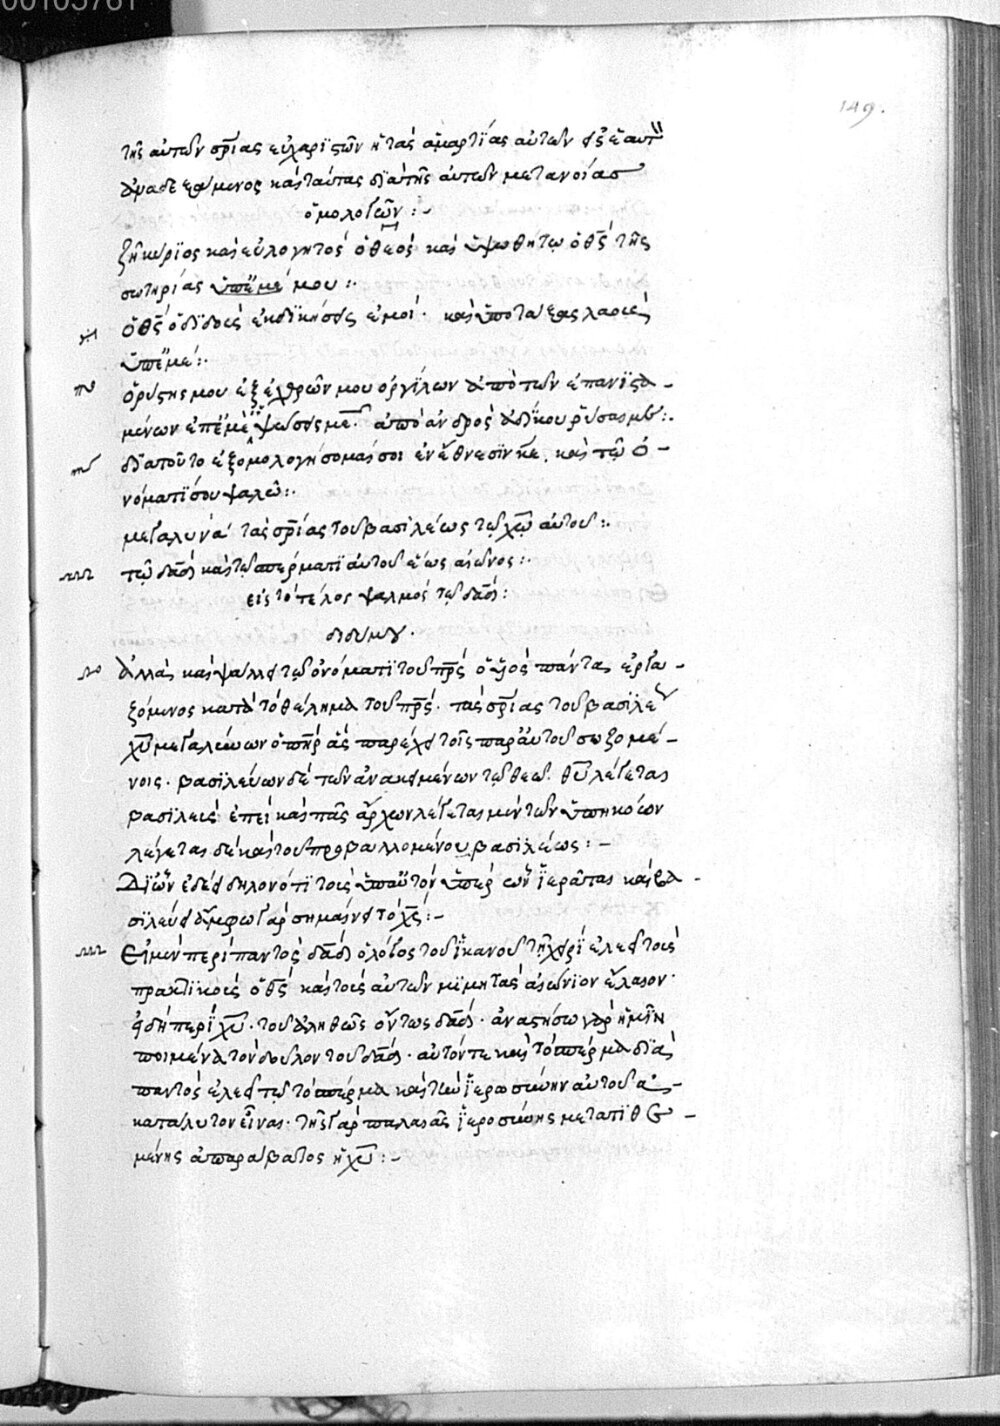 00105761
149.
τῆς αὐτῶν σρίας εὐχαριστῶν ἢ τὰς ἁμαρτίας αὐτῶν εἰς ἑαυτ
ἀναδεξάμενος καὶ ταύτας διὰ τῆς αὐτῶν μετανοίας
ὁμολογῶν :-
ζῇ κύριος καὶ εὐλογητὸς ὁ θεός καὶ ὑψωθήτω ὁ θς τῆς
σωτηρίας μου :.
ὁ θς ὁ διδοὺς ἐκδικήσεις ἐμοί· καὶ ὑποτάξας λαοὺς
ὑπ' ἐμέ :.
ὁ ῥύστης μου ἐξ ἐχθρῶν μου ὀργίλων ἀπὸ τῶν ἐπανιστα-
μένων ἐπ' ἐμὲ ὑψώσεις με· ἀπὸ ἀνδρὸς ἀδίκου ῥῦσαί με :.
διὰ τοῦτο ἐξομολογήσομαί σοι ἐν ἔθνεσιν κε, καὶ τῷ ὀ-
νόματί σου ψαλῶ :.
μεγαλύνων τὰς σρίας τοῦ βασιλέως τῷ χω αὐτοῦ :.
τῷ δαδ καὶ τῷ σπέρματι αὐτοῦ ἕως αἰῶνος :.
εἰς τὸ τέλος ψαλμὸς τῷ δαδ :
διδύμου.
Ἀλλὰ καὶ ψάλλει τῷ ὀνόματι τοῦ πρς ὁ υἱὸς πάντας ἐργα-
ζόμενος κατὰ τὸ θέλημα τοῦ πρς· τὰς σρίας τοῦ βασιλέ
χυ μεγαλύνων ὁ πηρ ἃς παρέχει τοῖς παρ' αὐτοῦ σωζομέ-
νοις· βασιλεύων δὲ τῶν ἀνακειμένων τῷ θεῷ θυ λέγεται
βασιλεὺς ἐπεὶ καὶ πᾶς ἄρχων λέγεται μὲν τῶν ὑπηκόων
λέγεται δὲ καὶ τοῦ προβαλλομένου βασιλέως :-
Διὸ ἔδει δηλονότι τοὺς ὑπ' αὐτὸν ὑπὲρ ὧν ἱερᾶται καὶ βα-
σιλεύει ἄμφω γὰρ σημαίνει τὸ χς :-
Εἰ μὲν περὶ παντὸς δαδ ὁ λόγος τοῦ ἱκανοῦ τῇ χειρὶ ἐλεεῖ τοὺς
πρακτικοὺς ὁ θς καὶ τοὺς αὐτῶν μιμητὰς αἰώνιον ἔλαιον·
εἰ δὲ περὶ χυ· τοῦ ἀληθῶς ὄντως δαδ· ἀναστήσω γὰρ ἡμῖν
ποιμένα τὸν δοῦλόν του δαδ· αὐτόν τε καὶ τὸ σπέρμα διὰ
παντὸς ἐλεεῖ τῷ τὸ σπέρμα καὶ τὴν ἱερωσύνην αὐτοῦ ἀ-
κατάλυτον εἶναι· τῆς γὰρ παλαιᾶς ἱεροσύνης μετατιθε-
μένης ἀπαράβατος ἡ χυ :-